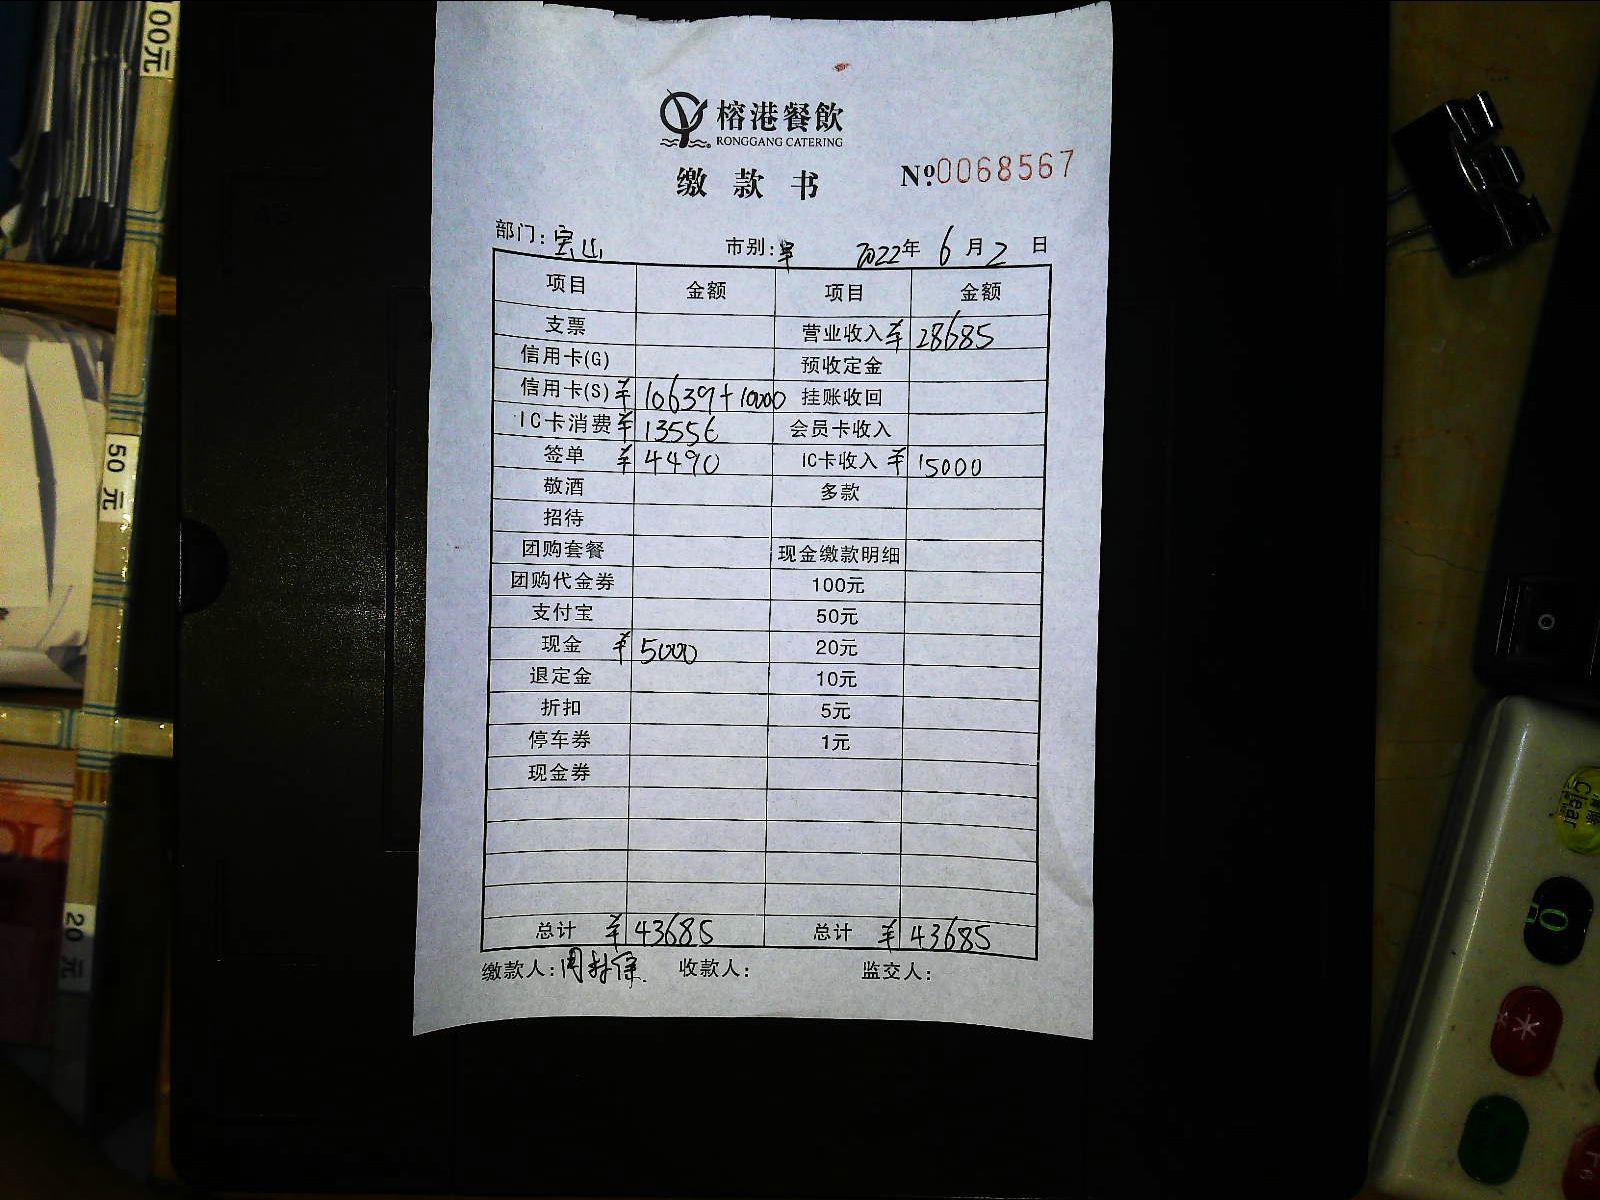 榕港餐飲
RONGGANG CATERING
缴款书
Nº.0068567
部门:宝山 市别:早 2022年6月2日
项目 金额 项目 金额
支票 营业收入 ¥28685
信用卡(G) 预收定金
信用卡(S) ¥10639+10000 挂账收回
IC卡消费 ¥13556 会员卡收入
签单 ¥4490 IC卡收入 ¥15000
敬酒 多款
招待
团购套餐 现金缴款明细
团购代金券 100元
支付宝 50元
现金 ¥5000 20元
退定金 10元
折扣 5元
停车券 1元
现金券
总计 ¥43685 总计 ¥43685
缴款人: 收款人: 监交人:
100元
50元
20元
清除
Clear
0
*